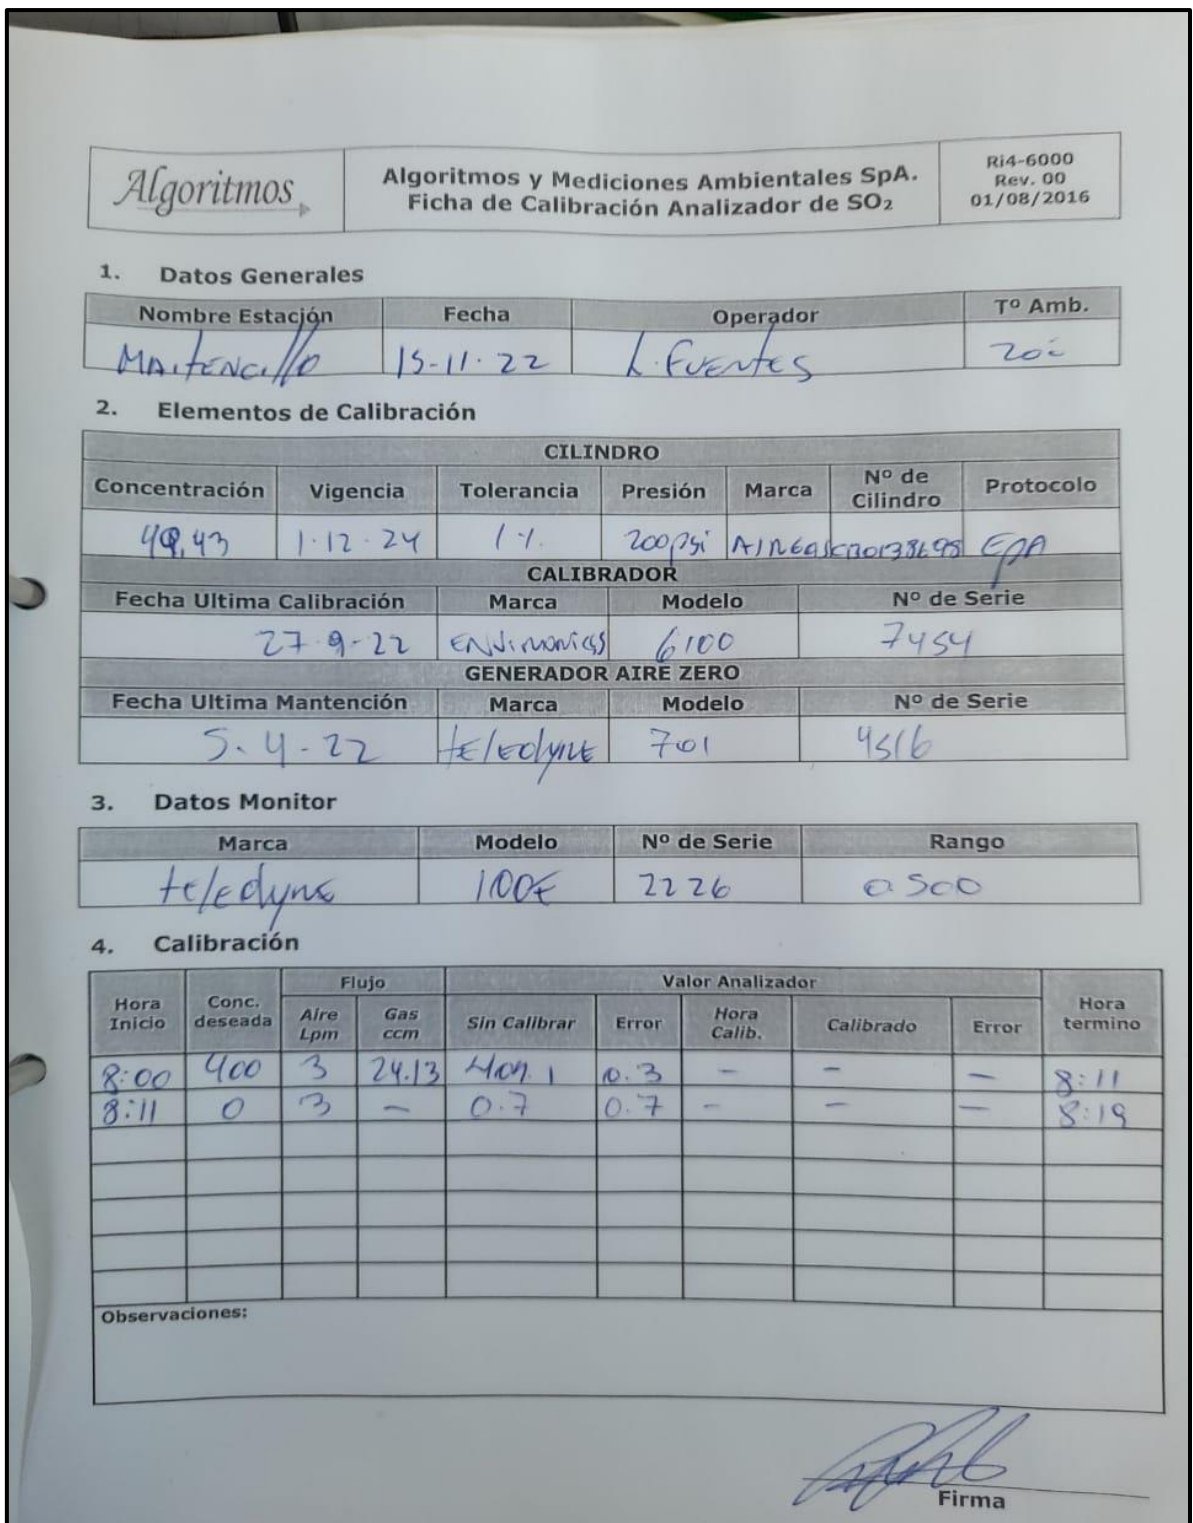 Algoritmos
Algoritmos y Mediciones Ambientales SpA.
Ficha de Calibración Analizador de SO₂
Ri4-6000
Rev. 00
01/08/2016
1. Datos Generales
Nombre Estación Fecha Operador Tº Amb.
Maitencillo 15-11-22 L. Fuentes
2. Elementos de Calibración
CILINDRO
Concentración Vigencia Tolerancia Presión Marca Nº de Cilindro Protocolo
1.12.24 1% 200psi EPA
CALIBRADOR
Fecha Ultima Calibración Marca Modelo Nº de Serie
27-9-22 6100 7454
GENERADOR AIRE ZERO
Fecha Ultima Mantención Marca Modelo Nº de Serie
5-4-22 teledyne 701 4516
3. Datos Monitor
Marca Modelo Nº de Serie Rango
teledyne 100E 2226
4. Calibración
Hora Inicio Conc. deseada Flujo Valor Analizador Hora termino
Aire Lpm Gas ccm Sin Calibrar Error Hora Calib. Calibrado Error
8:00 400 3 24.13 0.3 - - - 8:11
8:11 0 3 - 0.7 0.7 - - - 8:19
Observaciones:
Firma